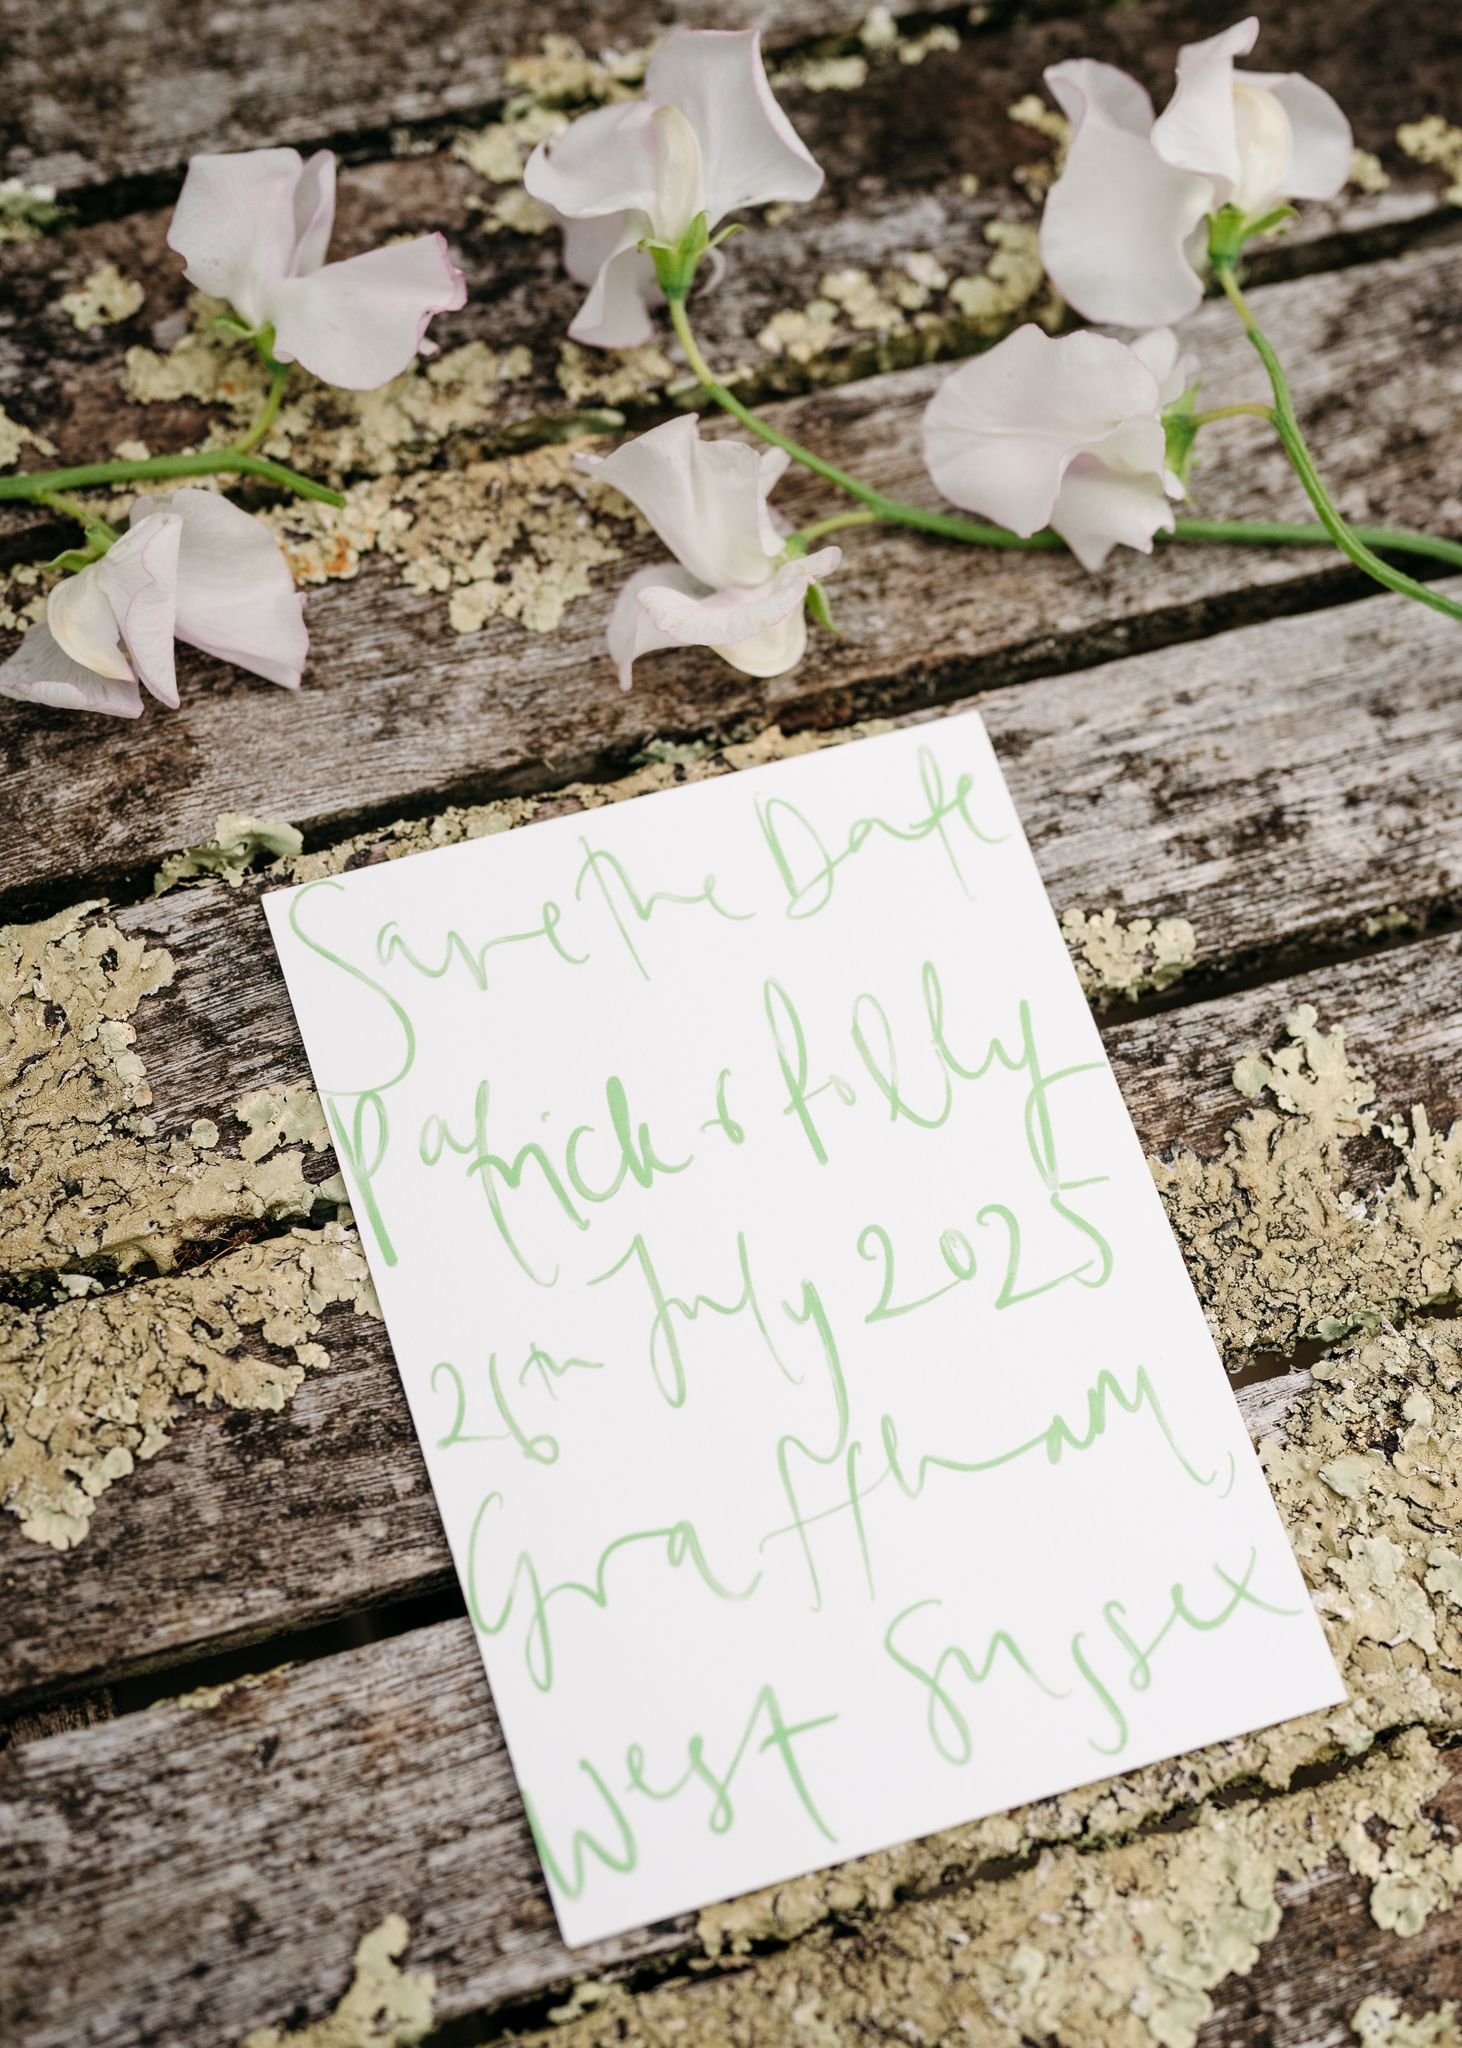 Save the Date
Patrick & Polly
26th July 2025
Graffham,
West Sussex